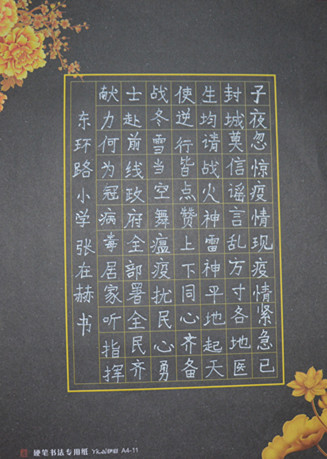 子夜忽惊疫情现疫情紧急已
封城莫信谣言乱方寸各地医
生均请战火神雷神平地起天
使逆行皆点赞上下同心齐备
战冬雪当空舞瘟疫扰民心勇
士赴前线政府全部署全民齐
献力何为冠病毒居家听指挥
东环路小学张在赫书
硬笔书法专用纸 A4-11